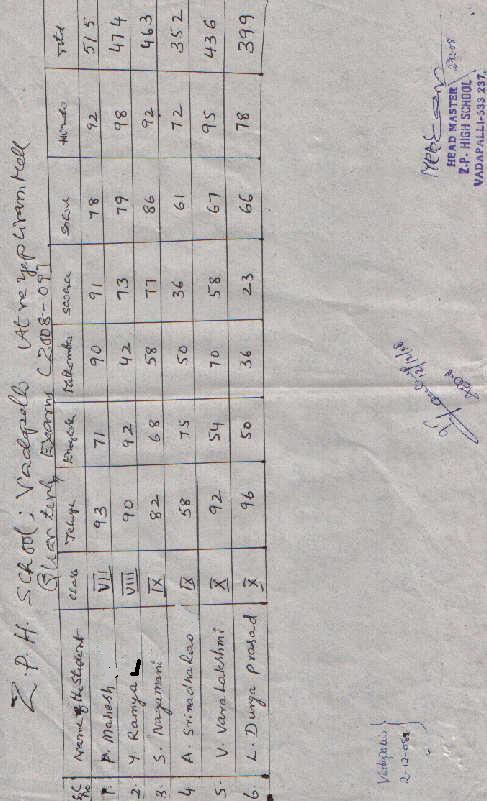 Z.P.H. School: Vadapalli (Atreyapuram Mdl)
Quarterly Exams (2008-09)
Sl. No Name of the Student class Telugu English Mathematics Science Social Hindi Total
1. P. Mahesh VII 93 71 90 91 78 92 515
2. Y Ramya VIII 90 92 42 73 79 98 474
3 S. Nagamani IX 82 68 58 77 86 92 463
4 A. Srinadha Rao IX 58 75 50 36 61 72 352
5. V. Varalakshmi X 92 54 70 58 67 95 436
6 L. Durga Prasad X 96 50 36 23 66 78 399
HEAD MASTER
Z.P. HIGH SCHOOL
VADAPALLI-533 237.